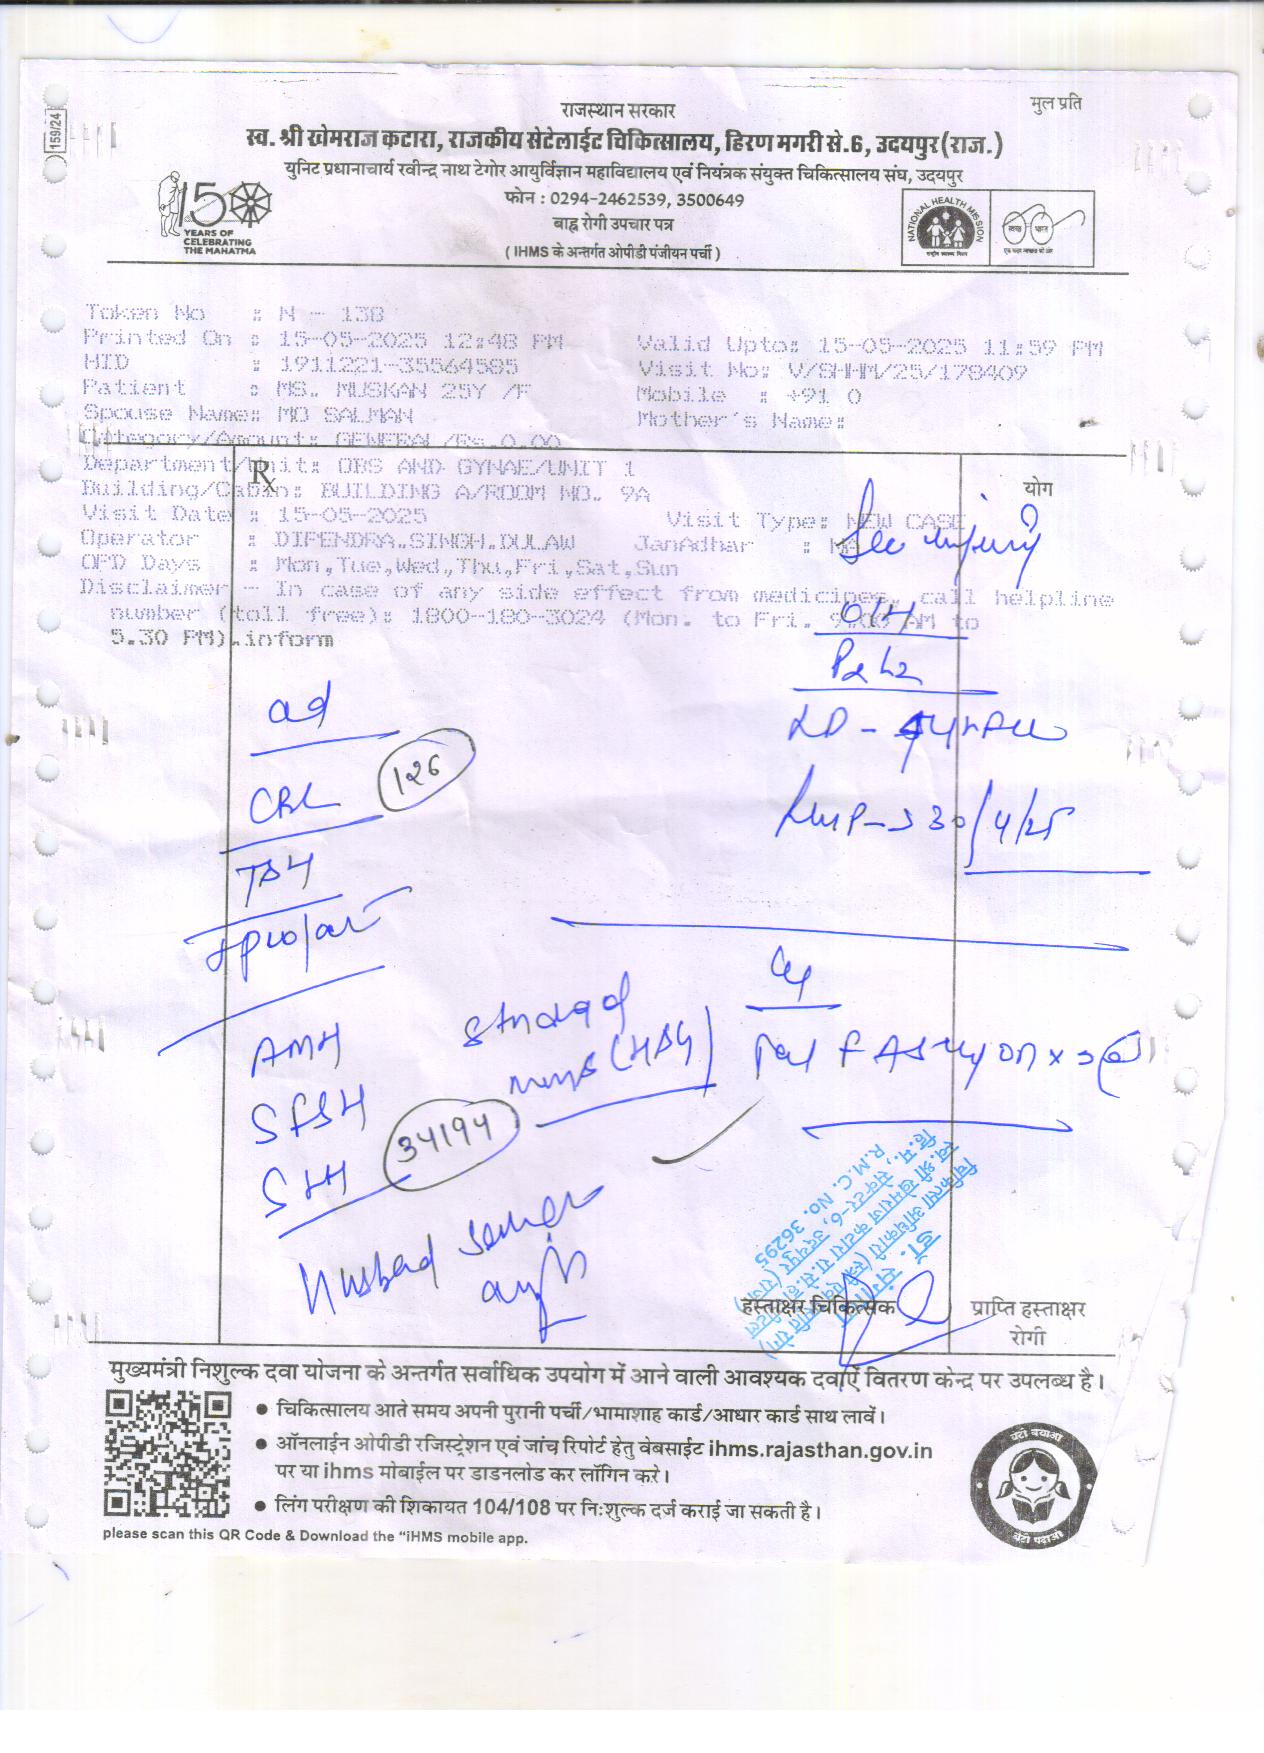 159/24
मुल प्रति
राजस्थान सरकार
स्व. श्री खेमराज कटारा, राजकीय सेटेलाईट चिकित्सालय, हिरण मगरी से.6, उदयपुर(राज.)
युनिट प्रधानाचार्य रवीन्द्र नाथ टेगोर आयुर्विज्ञान महाविद्यालय एवं नियंत्रक संयुक्त चिकित्सालय संघ, उदयपुर
फोन : 0294-2462539, 3500649
बाह्य रोगी उपचार पत्र
( IHMS के अन्तर्गत ओपीडी पंजीयन पर्ची )
150
YEARS OF
CELEBRATING
THE MAHATMA
NATIONAL HEALTH MISSION
राष्ट्रीय स्वास्थ्य मिशन
स्वच्छ भारत
एक कदम स्वच्छता की ओर
Token No : N - 138
Printed On : 15-05-2025 12:48 PM Valid Upto: 15-05-2025 11:59 PM
HID : 1911221-35564585 Visit No: V/SHHM/25/178409
Patient : MS. MUSKAN 25Y /F Mobile : +91 0
Spouse Name: MO SALMAN Mother's Name:
Category/Amount: GENERAL/Rs.0.00
Department/Unit: OBS AND GYNAE/UNIT 1
Rx
योग
Building/Cabin: BUILDING A/ROOM NO. 9A
Visit Date : 15-05-2025 Visit Type: NEW CASE
Operator : DIPENDRA.SINGH.DULAW JanAdhar :
OPD Days : Mon,Tue,Wed,Thu,Fri,Sat,Sun
Disclaimer - In case of any side effect from medicines, call helpline
number (toll free): 1800-180-3024 (Mon. to Fri. 9.00 AM to
5.30 PM).inform
O/H
P2L2
LMP-> 30/4/25
ad
CBC 126
TSH
AMH
SFSH
SLH 34194
Husband semen
R.M.C. No. 36295
हस्ताक्षर चिकित्सक
प्राप्ति हस्ताक्षर
रोगी
मुख्यमंत्री निशुल्क दवा योजना के अन्तर्गत सर्वाधिक उपयोग में आने वाली आवश्यक दवाएँ वितरण केन्द्र पर उपलब्ध है।
● चिकित्सालय आते समय अपनी पुरानी पर्ची/भामाशाह कार्ड/आधार कार्ड साथ लावें।
● ऑनलाईन ओपीडी रजिस्ट्रेशन एवं जांच रिपोर्ट हेतु वेबसाईट ihms.rajasthan.gov.in
पर या ihms मोबाईल पर डाडनलोड कर लॉगिन करे।
● लिंग परीक्षण की शिकायत 104/108 पर निःशुल्क दर्ज कराई जा सकती है।
please scan this QR Code & Download the "iHMS mobile app.
बेटी बचाओ
बेटी पढ़ाओ